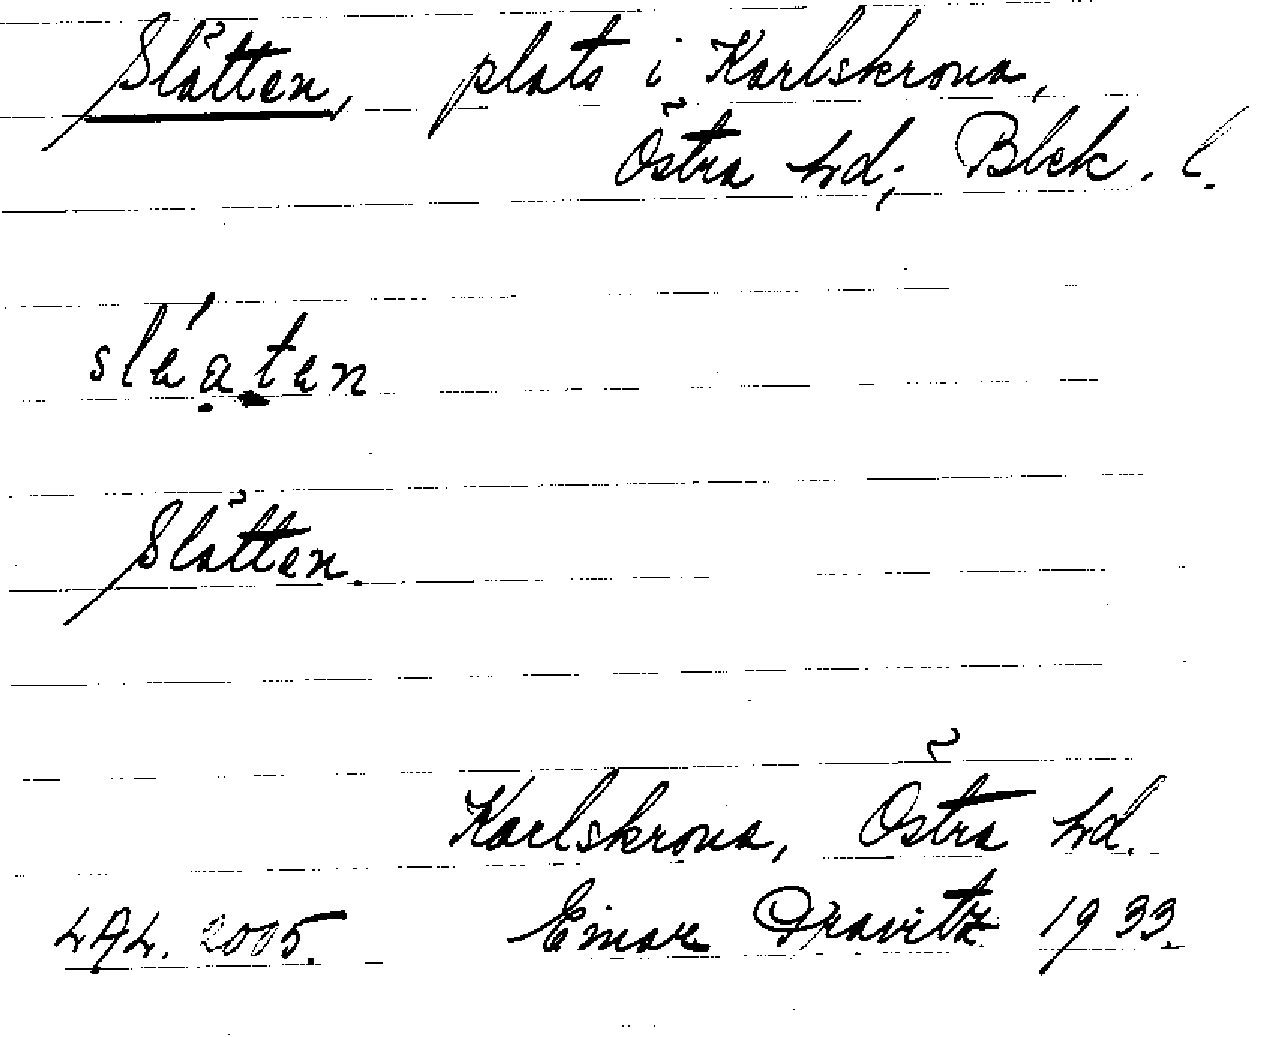 Slätten, plats i Karlskrona,
Östra hd; Blek. l.
sléaten
Slätten.
Karlskrona, Östra hd.
LAL. 2005. Einar Dravitz 1933.